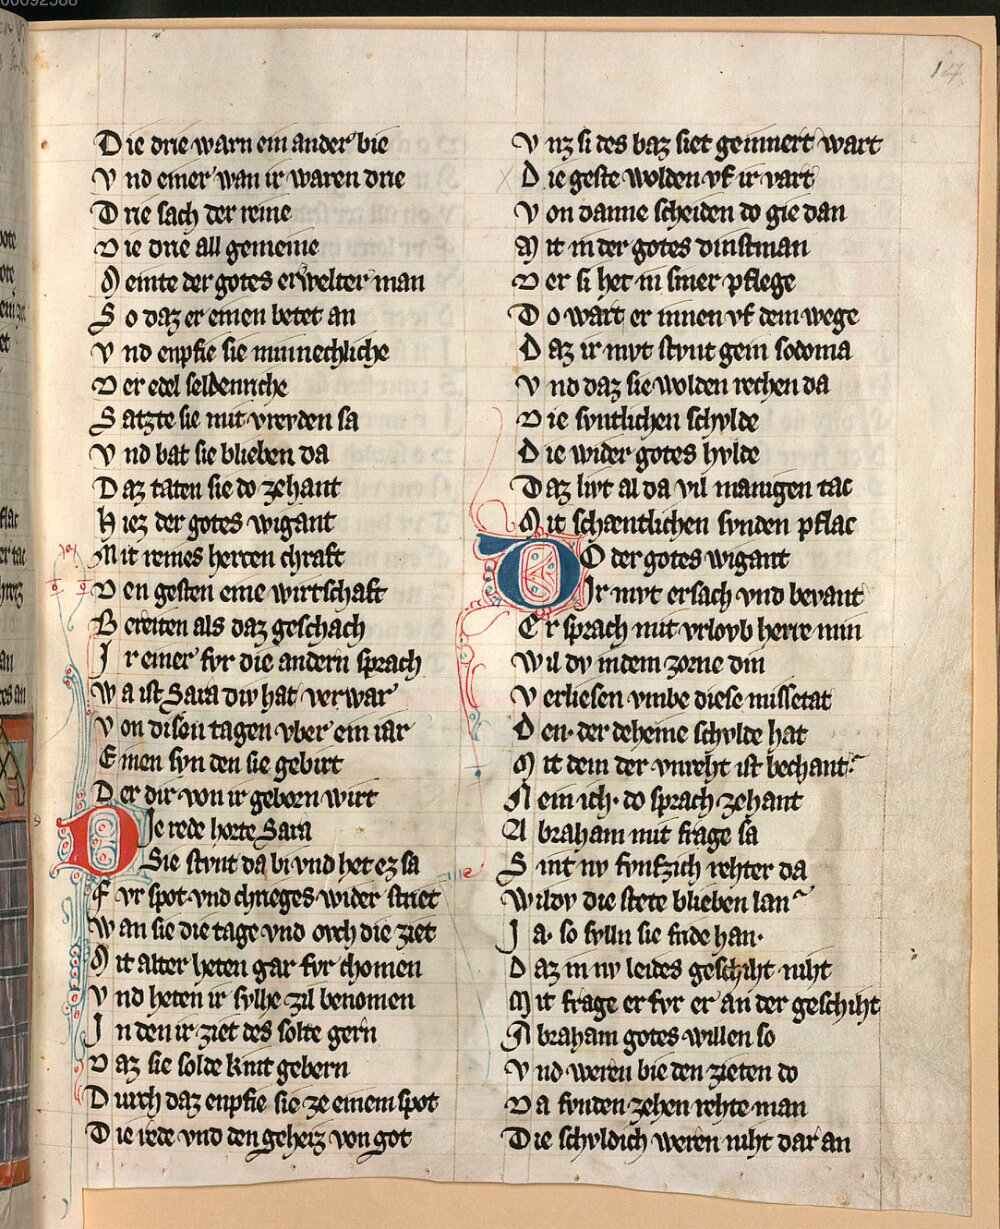 00092588
14
Die drie warn ein ander bie
Vnd einer wan ir waren drie
Drie sach der reine
Die drie all gemeine
Meinte der gotes erwelter man
So daz er einen betet an
Vnd enpfie sie minnechliche
Der edel seldenriche
Satzte sie mit vrevden sa
Vnd bat sie blieben da
Daz taten sie do zehant
Hiez der gotes wigant
Mit reines herten chraft
Den gesten eine wirtschaft
Bereiten als daz geschach
Ir einer fvr die andern sprach
Wa ist Sara div hat verwar
Von disen tagen vber ein iar
Einen svn den sie gebirt
Der dir von ir geborn wirt
Die rede horte Sara
Sie stvnt da bi vnd het ez sa
Fvr spot vnd chrieges wider striet
Wan sie die tage vnd ovch die ziet
Mit alter heten gar fvr chomen
Vnd heten ir sylhe zil benomen
In den ir ziet des solte gern
Daz sie solde kint gebern
Durch daz enpfie sie ze einem spot
Die rede vnd den geheiz von got
Vnz si des baz siet geinnert wart
Die geste wolden vf ir vart
Von danne scheiden do gie dan
Mit in der gotes dinstman
Der si het in siner pflege
Do wart er innen vf dem wege
Daz ir mvt stvnt gein sodoma
Vnd daz sie wolden rechen da
Die svntlichen schvlde
Die wider gotes hvlde
Daz livt al da vil manigen tac
Mit schæntlichen svnden pflac
DO der gotes wigant
Ir mvt ersach vnd bevant
Er sprach mit vrlovb herre min
Wil dv in dem zorne din
Verliesen vmbe diese missetat
Den der deheine schvlde hat
Mit dem der vnreht ist bechant
Nein ich do sprach zehant
Abraham mit frage sa
Sint nv fvnfzich rehter da
Wildv die stete blieben lan
Ja so svlln sie fride han
Daz in nv leides geschiht niht
Mit frage er fvr er an der geschiht
Abraham gotes willen so
Vnd weren bie den zieten do
Da fvnden zehen rehte man
Die schvldich weren niht dar an